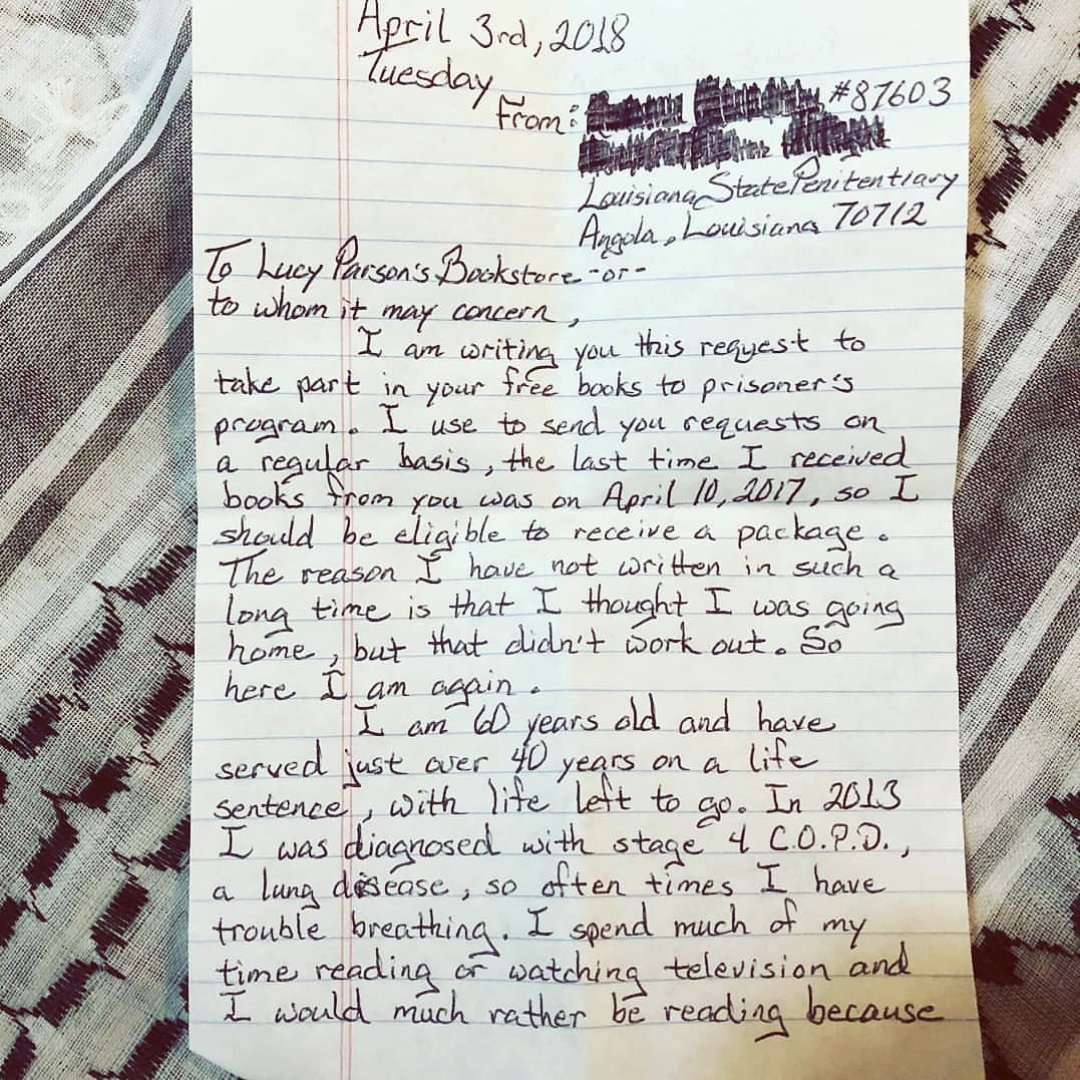 April 3rd, 2018
Tuesday
From: #87603
Louisiana State Penitentiary
Angola, Louisiana 70712
To Lucy Parson's Bookstore -or-
to whom it may concern,
I am writing you this request to
take part in your free books to prisoner's
program. I use to send you requests on
a regular basis, the last time I received
books from you was on April 10, 2017, so I
should be eligible to receive a package.
The reason I have not written in such a
long time is that I thought I was going
home, but that didn't work out. So
here I am again.
I am 60 years old and have
served just over 40 years on a life
sentence, with life left to go. In 2013
I was diagnosed with stage 4 C.O.P.D.,
a lung disease, so often times I have
trouble breathing. I spend much of my
time reading or watching television and
I would much rather be reading because